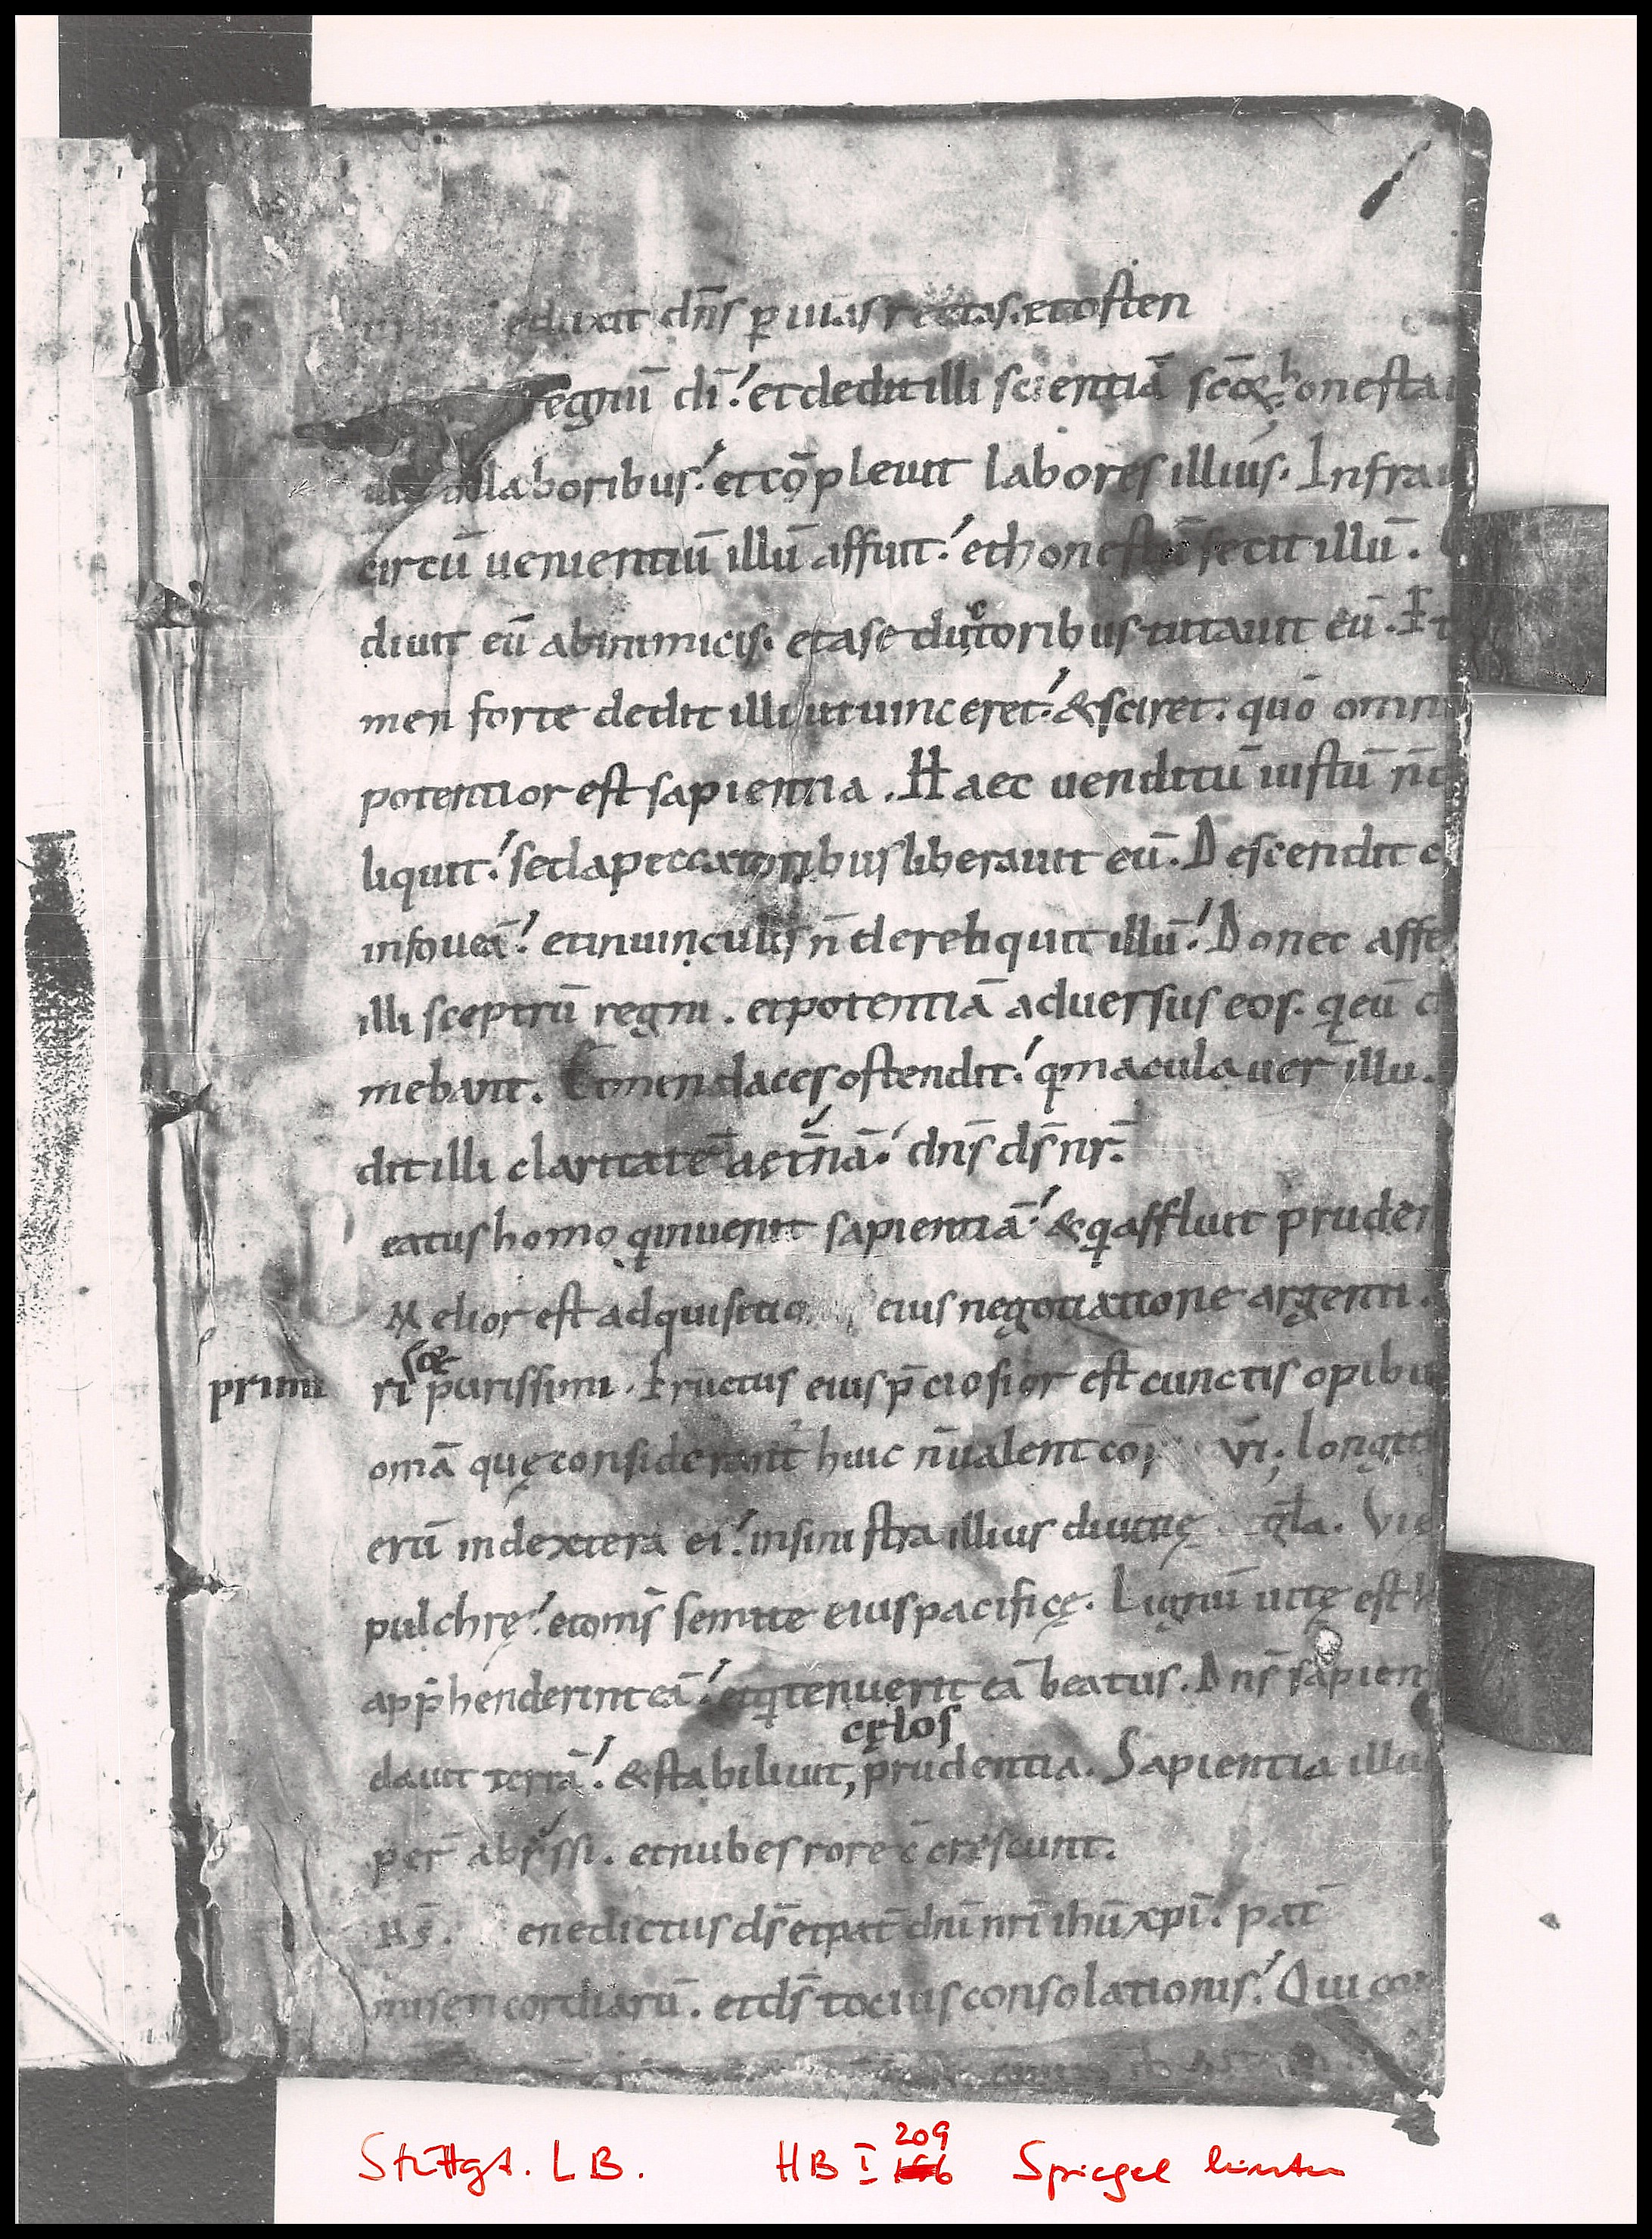 eduxit dn̄s ꝑ uias rectas. et osten
regnū dī. et dedit illi scientiā scōꝝ. honesta
laboribus. et cōpleuit labores illius. Infra
circū uenientiū illū affuit. et honestū fecit illū.
diuit eū ab inimicis. et a seductoribus tutauit eū. Et
men forte dedit illi ut uinceret. & sciret. quō omni
potentior est sapientia. Haec uenditū iustū n̄
liquit. sed a peccatoribus liberauit eū. Descendit
in foueā. et in uinculis n̄ dereliquit illū. Donec affe
illi sceptrū regni. et potentiā aduersus eos. q̇ eū
mebant. Et mendaces ostendit. q̇ maculauer̄ illū.
dit illi claritatē aet̄nā. dn̄s ds̄ nr̄.
eatus homo q̇ inuenit sapientiā. & q̇ affluit pruden
Melior est adquisitio eius negotiatione argenti.
primi ri purissimi. Fructus eius p̄ciosior est cunctis opibu
om̄a quę considerant̄ huic n̄ ualent longit
erū in dextera ei. in sinistra illius diuitię gl̄a. Vię
pulchrę. et om̄s semite eius pacificę. Lignū uitę est
app̄henderint eā. et q̇ tenuerit eā beatus. Dn̄s sapien
cęlos
dauit terrā. & stabiliuit, prudentia. Sapientia illi
per̄ abyssi. et nubes rore c̄crescunt.
enedictus ds̄ et pat̄ dn̄i nr̄i ihū xpī. pat̄
misericordiarū. et ds̄ tocius consolationis. Qui con
Stuttgt. LB. HB I 209 Spiegel hinten